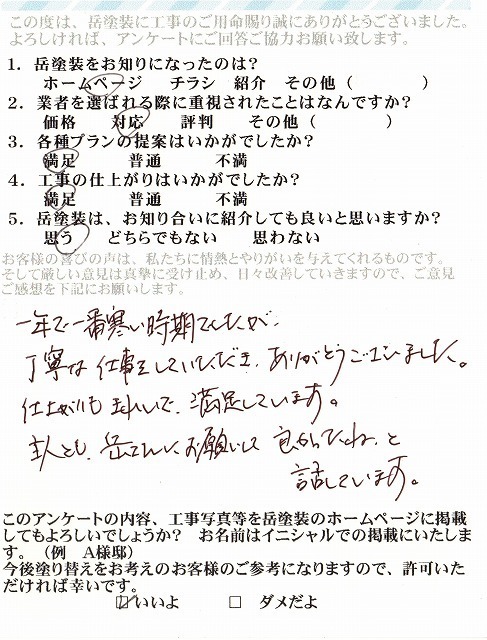 この度は、岳塗装に工事のご用命賜り誠にありがとうございました。
よろしければ、アンケートにご回答ご協力お願い致します。
1．岳塗装をお知りになったのは？
ホームページ　チラシ　紹介　その他（　　　　）
2．業者を選ばれる際に重視されたことはなんですか？
価格　対応　評判　その他（　　　　）
3．各種プランの提案はいかがでしたか？
満足　普通　不満
4．工事の仕上がりはいかがでしたか？
満足　普通　不満
5．岳塗装は、お知り合いに紹介しても良いと思いますか？
思う　どちらでもない　思わない
お客様の喜びの声は、私たちに情熱とやりがいを与えてくれるものです。
そして厳しい意見は真摯に受け止め、日々改善していきますので、ご意見
ご感想を下記にお願いします。
一年で一番寒い時期でしたが、
丁寧な仕事をしていただき、ありがとうございました。
仕上がりもきれいで、満足しています。
主人とも、岳さんにお願いして良かったねと
話しています。
このアンケートの内容、工事写真等を岳塗装のホームページに掲載
してもよろしいでしょうか？　お名前はイニシャルでの掲載にいたしま
す。（例　A様邸）
今後塗り替えをお考えのお客様のご参考になりますので、許可いた
だければ幸いです。
□いいよ　□　ダメだよ